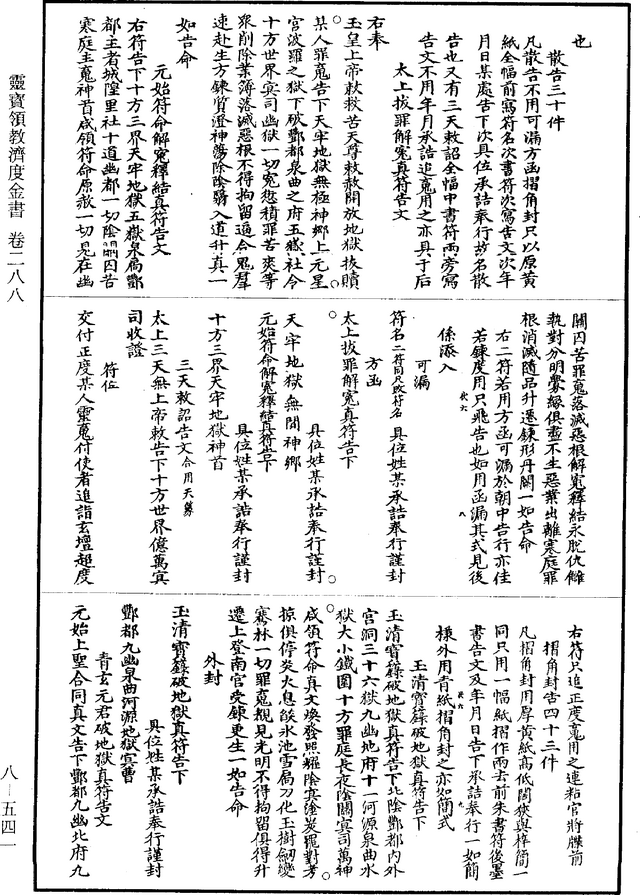 靈寶領教濟度金書 卷二八八
八-五四一
也
散告三十件
凡散告不用可漏方函摺角封只以原黃
紙全幅前寫符名次書符次寫告文次年
月日某處告下次具位承誥奉行故名散
告也又有三天敕詔全幅中書符兩旁寫
告文不用年月承誥追䰟用之亦具于后
太上拔罪解冤真符告文
右奉
玉皇上帝敕救苦天尊敕赦開放地獄拔贖
某人罪䰟告下天牢地獄無極神鄉上元星
宮波羅之獄下破酆都泉曲之府五嶽社令
十方世界冥司幽獄一切冤愆積罪苦爽等
眾削除業簿落滅惡根不得拘留逼合鬼羣
速赴生方鍊質澄神蕩除陰翳入道升真一
如告命
元始符命解冤釋結真符告文
右符告下十方三界天牢地獄五嶽泉扃酆
都主者城隍里社十道幽都一切陰關囚苦
寒庭主䰟神首咸領符命原赦一切見在幽
關囚苦罪䰟落滅惡根解冤釋結永脫仇讎
執對分明釁緣俱盡不生惡業出離寒庭罪
根消滅隨品升遷鍊形丹闕一如告命
右二符若用方函可漏於朝中告行亦佳
若鍊度用只飛告也如用函漏其式見後
係添入
可漏
符名二符同只改符名 具位姓某承誥奉行謹封
方函
太上拔罪解冤真符告下
具位姓某承誥奉行謹封
天牢地獄無間神鄉
元始符命解冤釋結真符告下
具位姓某承誥奉行謹封
十方三界天牢地獄神首
三天敕詔告文合用天篆
太上三天無上帝敕告下十方世界億萬冥
司收證
符位
交付正度某人靈䰟付使者追詣玄壇超度
右符只追正度䰟用之連粘官將牒前
摺角封告四十三件
凡摺角封用厚黃紙高低闊狹與梓簡一
同只用一幅紙摺作兩去前朱書符後墨
書告文及年月日告下承誥奉行一如簡
樣外用青紙摺角封之亦如簡式
玉清寶籙破地獄真符告下
玉清寶籙破地獄真符告下北陰酆都內外
宮洞三十六獄九幽地府十一河源泉曲水
獄大小鐵圍十方罪庭長夜陰關冥司萬神
咸領符命真文煥發照耀陰冥塗炭罷對考
掠俱停炎火息燄氷池雪扃刀化玉樹劒變
騫林一切罪䰟覩見光明不得拘留俱得升
遷上登南宮受鍊更生一如告命
外封
玉清寶籙破地獄真符告下
具位姓某承誥奉行謹封
酆都九幽泉曲河源地獄冥曹
青玄元君破地獄真符告文
元始上聖合同真文告下酆都九幽北府九